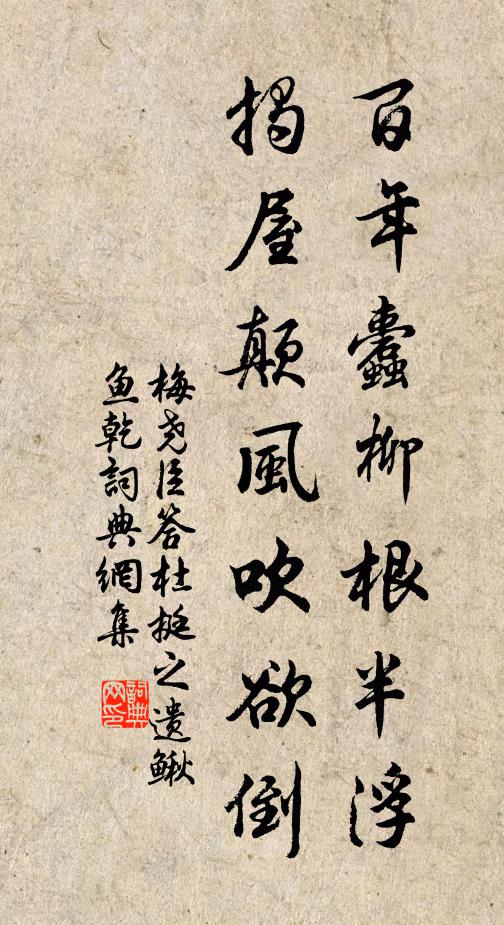 百年蠹柳根半浮
揭屋顛風吹欲倒
梅尧臣答杜挺之遗鳅
鱼乾詞典網集
詞典網印